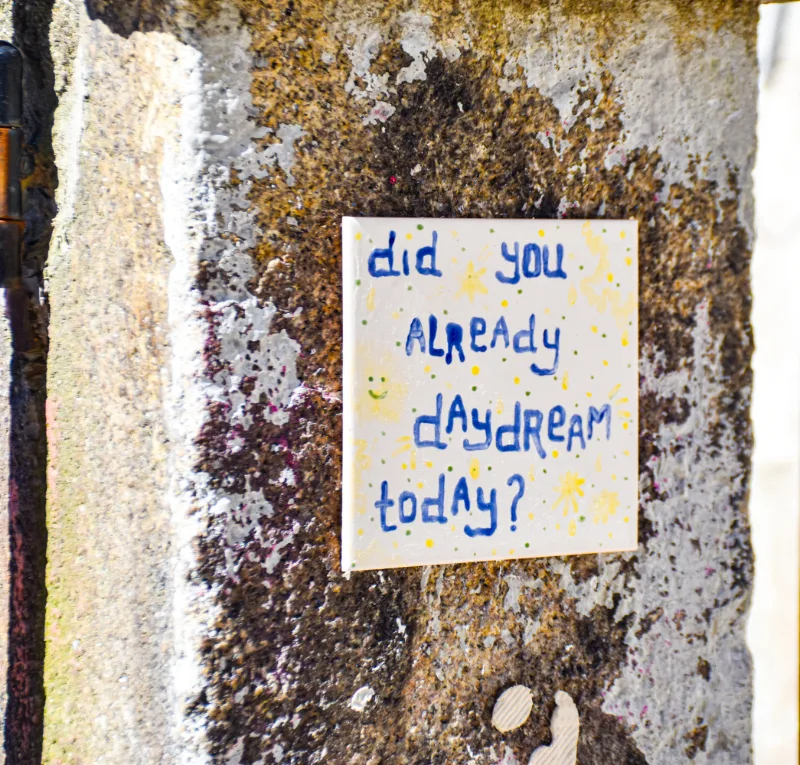 did you
ALReAdy
dAydReAM
todAy?